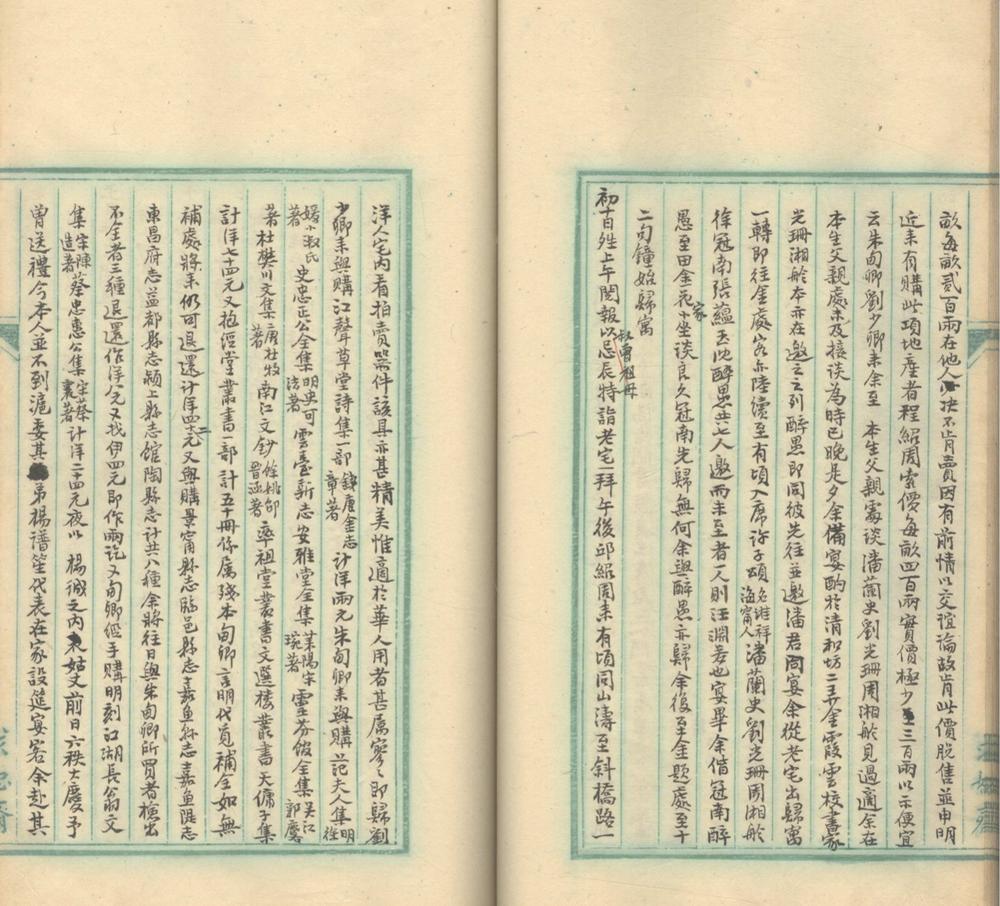 畝每畝貳百兩在他人決不肯賣因有前情以交誼論故肯此價脫售並申明
近來有購此項地產者程紹周索價每畝四百兩實價極少三百兩以示便宜
云朱甸卿劉少卿來余至 本生父親處談潘蘭史劉光珊周湘舲見過適余在
本生父親處未及接談為時已晚是夕余備宴酌於清和坊二弄金霞雲校書家
光珊湘舲本亦在邀之之列醉愚即同彼先往並邀潘君同宴余從老宅出歸寓
一轉即往金處客亦陸續至有頃入席許子頌名淮祥海甯人潘蘭史劉光珊周湘舲
徐冠南張蘊玉沈醉愚共七人邀而未至者一人則汪淵若也宴畢余偕冠南醉
愚至田金花家小坐談良久冠南先歸無何余與醉愚亦歸余復至金題處至十
二句鐘始歸寓
初十日 上午閱報以叔曾祖母忌辰特詣老宅一拜午後邱紹周來有頃同山濤至斜橋路一
洋人宅內看拍賣器件該具亦甚精美惟適於華人用者甚屬寥寥即歸劉
少卿來與購江聲草堂詩集一部錢唐金志章著計洋兩元朱甸卿來與購范夫人集明徐
媛小淑氏著史忠正公全集明史可法著雲臺新志安雅堂全集萊陽宋琬著靈芬館全集吳江郭麐
著杜樊川文集唐杜牧著南江文鈔餘姚邵晉涵著率祖堂叢書文選樓叢書天傭子集
計洋七十四元又抱經堂叢書一部計五十冊係屬殘本甸卿言明代覓補全如無
補處將來仍可退還計洋四十二元又與購景甯縣志臨邑縣志嘉魚縣志嘉魚隄志
東昌府志益都縣志潁上縣志館陶縣志計共八種余將往日與朱甸卿所買者檢出
不全者三種退還作洋八元又找伊四元即作兩訖又甸卿經手購明刻江湖長翁文
集宋陳造著蔡忠惠公集宋蔡襄著計洋二十四元夜以 楊緘之內 姑丈前日六秩大慶予
曾送禮今本人並不到滬委其弟楊譜笙代表在家設筵宴客余赴其